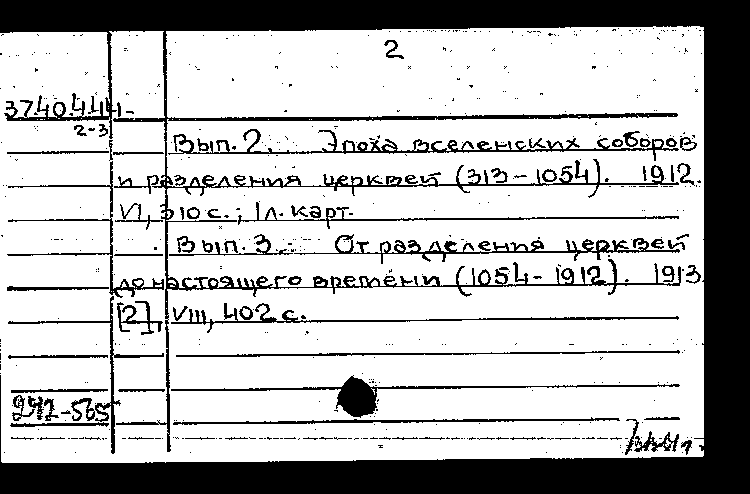 2
37.40.444-
2-3
Вып. 2. Эпоха вселенских соборов
и разделения церквей (313-1054). 1912.
VI, 310 с.; 1 л. карт.
Вып. 3. От разделения церквей
до настоящего времени (1054-1912). 1913.
[2], VIII, 402 с.